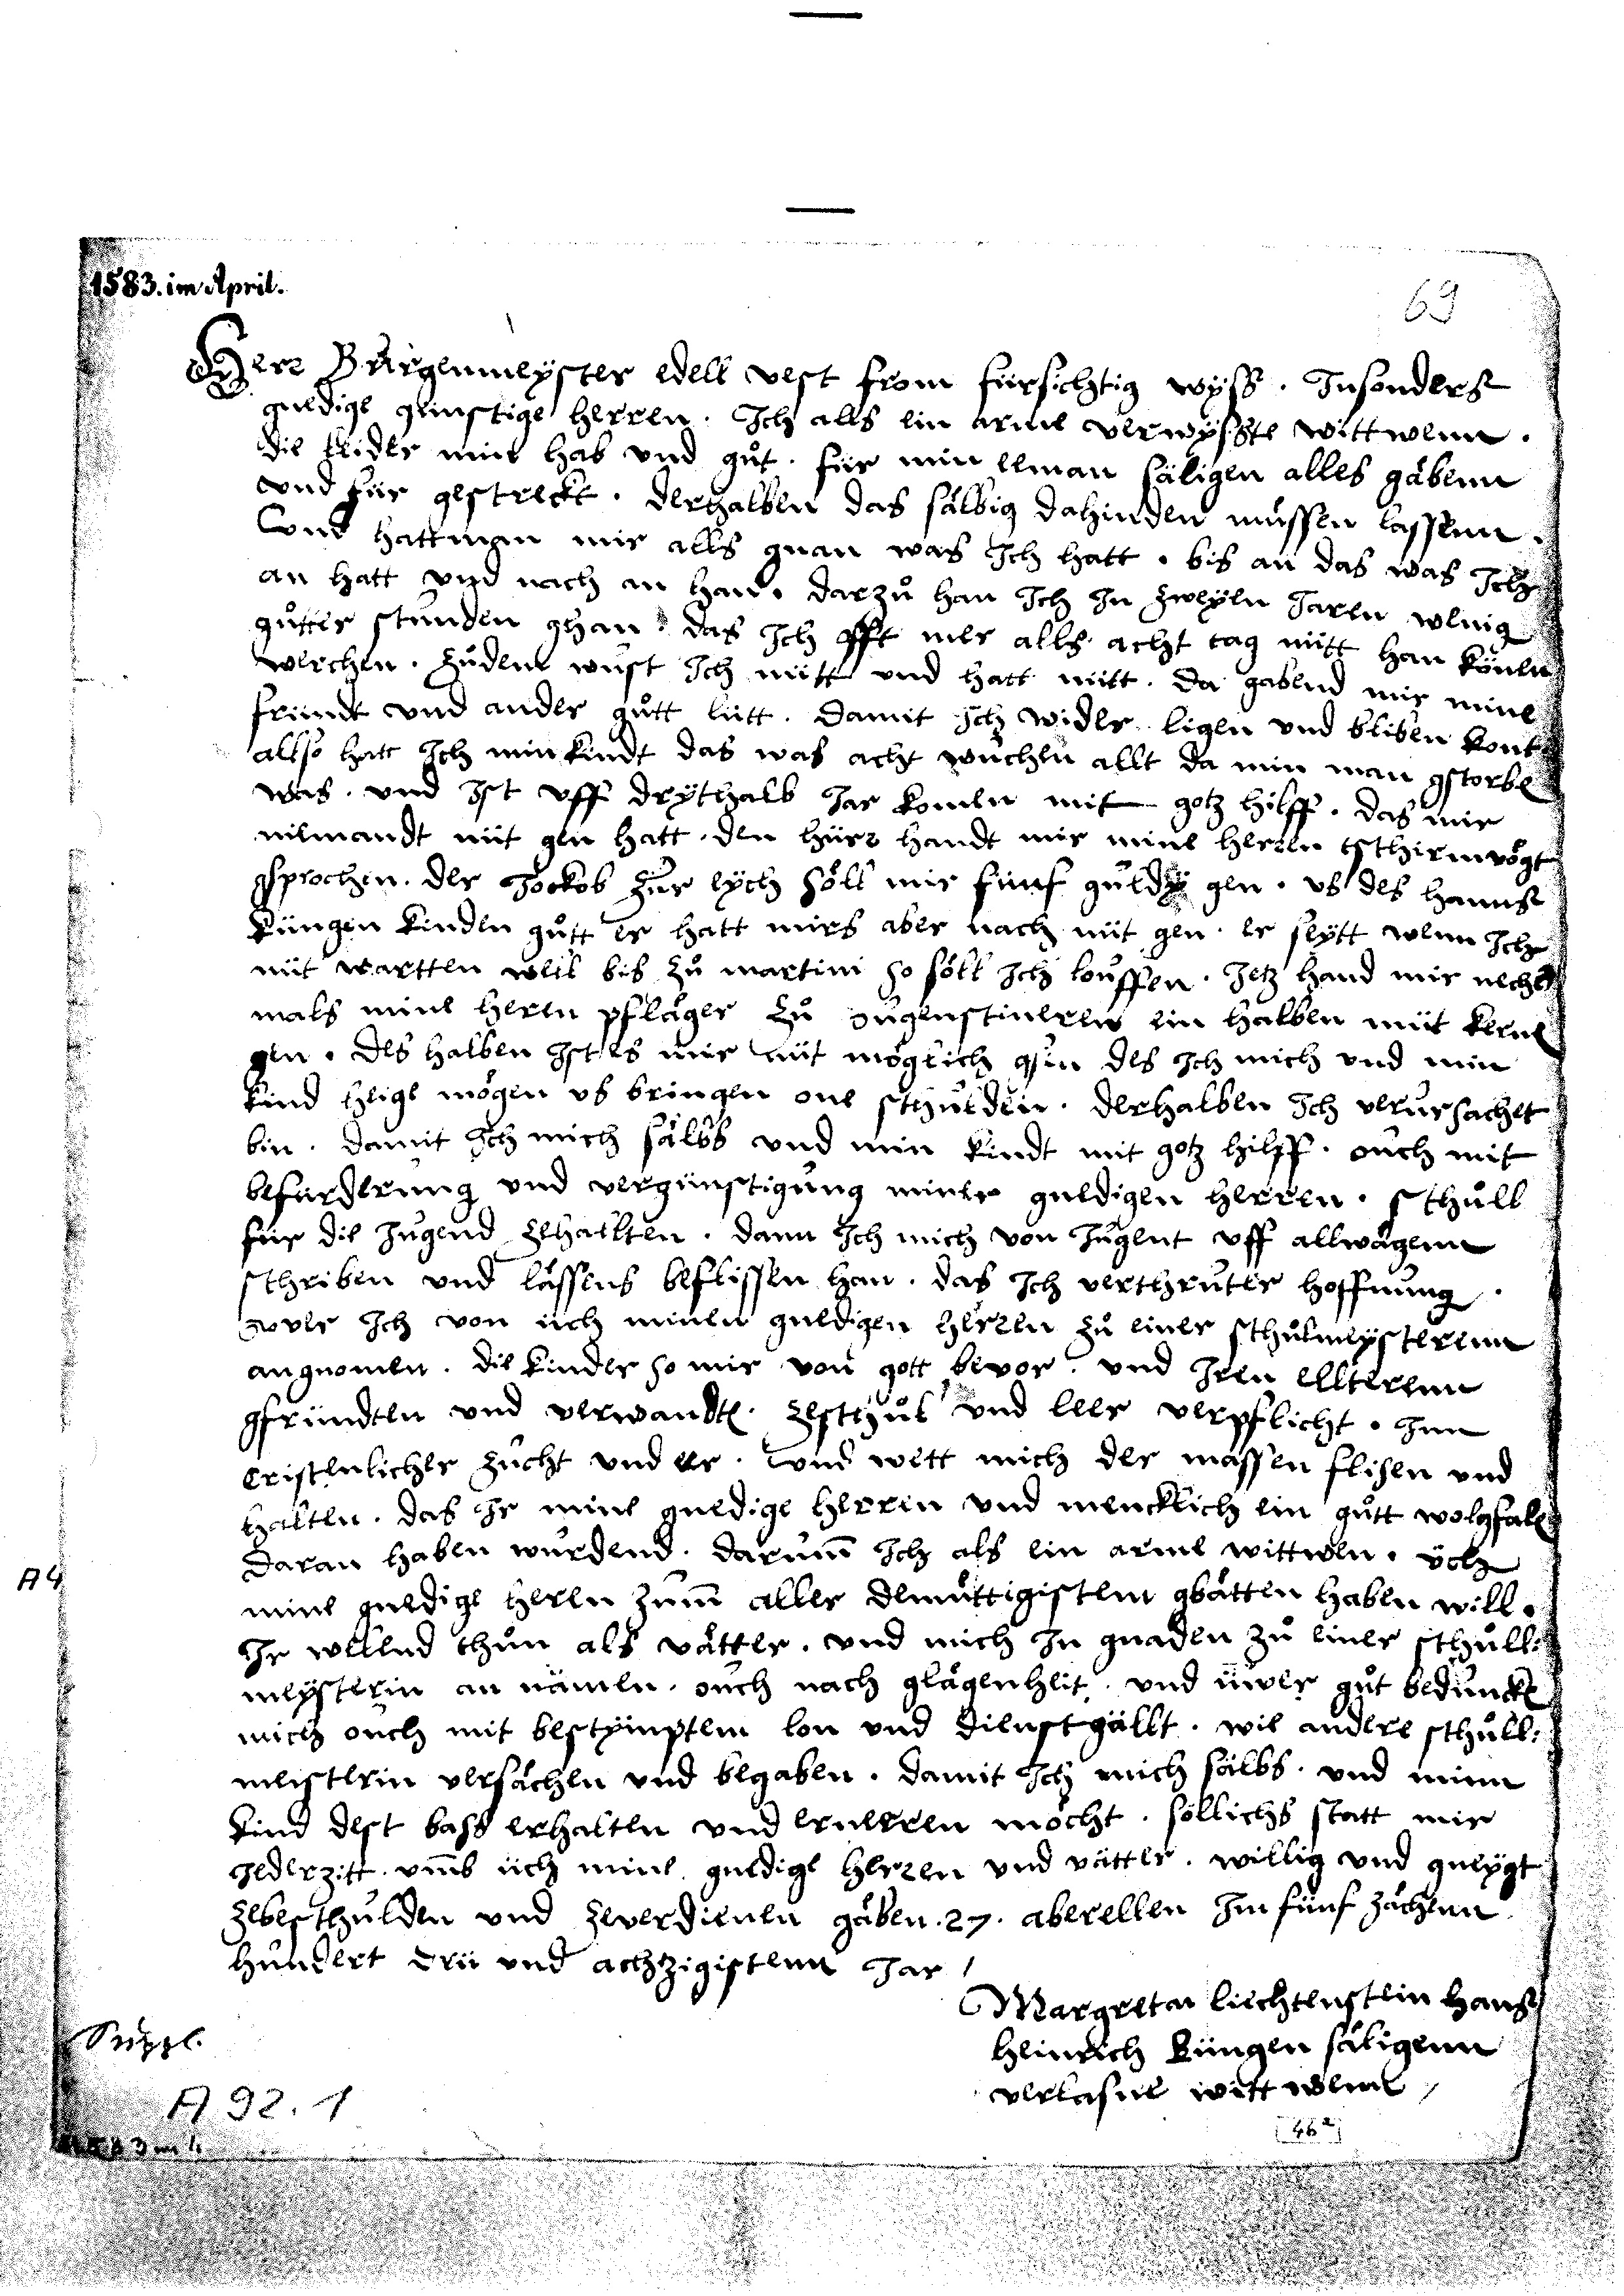 1583. im April.
69
Herr Burgenmeyster edell vest from fürsichtig wyss. Insonders
gnedige günstige herren. Ich alls ein arme verwyßte wittwenn.
die leider mine hab und guͦt. für min eeman säligen alles gäbenn
und für gestreckt. derhalben das sälbig dahinden müssen lassenn.
Und hattman mir alls gnan was Ich hatt. bis an das was Ich
an hatt und nach an han. darzuͦ han Ich In zweyen Jaren wenig
guͦtter stunden ghan. das Ich offt mer alls acht tag nütt han könen
werchen. zuͦdem wust Ich nütt und hatt nütt. da gabend mir mine
fründt und ander guͦtt lütt. damit Ich wider ligen und bliben kont
allso hatt Ich min kindt das was acht wuchen allt da min man gstorbe
was. und Ist uff drythalb Jar komen mit gotz hilff. das mir
niemandt nüt gen hatt. den hürr handt mir mine herren schirmvögt
gsprochen. der Jockob zur eych söll mir fünf guldy gen. us des hanns
küngen kinden guͦtt er hatt mirs aber nach nüt gen. er seytt wenn Ich
nüt wartten well bis zuͦ martini so söll Ich louffen. Jetz hand mir nechst
mals mine heren pfläger zuͦ ougenstineren ein halben müt kerne
gen. des halben Ist es mir nüt möglich gsin des Ich mich und min
kind heige mögen us bringen one schulden. derhalben Ich verursachet
bin. damit Ich mich sälbs und min kindt mit gotz hilff. ouch mit
befürderung und vergünstigung miner gnedigen herren. schuͦll
für die Jugend zehallten. dann Ich mich von Jugent uff allwägenn
schriben und lässens beflissen han. das Ich verthruter hoffnung.
wver Ich von üch minen gnedigen herren zuͦ einer schuͦlmeysterenn
angnomen. die kinder so mir von gott bevor. und Iren ellterenn
gfründten und verwandte. zeschuͦl und leer verpflicht. Inn
cristenlicher zucht und er. Und wett mich der massen flisen und
halten. das Ir mine gnedige herren und mencklich ein guͦtt wolgfale
daran haben wurdend. darumm Ich als ein arme wittwen. üch
mine gnedige heren zumm aller demüttigistem gbätten haben will.
Ir wellend thuͦn als vätter. und mich In gnaden zuͦ einer schuͦll:
meysterin an nämen. ouch nach glägenheit. und üwer guͦt beduncke
mich ouch mit bestymptem lon und dienstgällt. wie andere schuͦll:
meisterin versächen und begaben. damit Ich mich sälbs. und minn
kind dest bass erhalten und erneeren möcht. söllichs statt mir
Jederzitt. umms üch mine gnedige herren und vätter. willig und gneygt
zebeschulden und zeverdienen gäben. 27. aberellen Im fünf zächenn
hundert drü und achtzigistenn Jar /
Margreta liechtenstein hans
heinrich küngen säligenn
verlasne wittwenn /
Suppl.
A 92. 1
46ª
A4